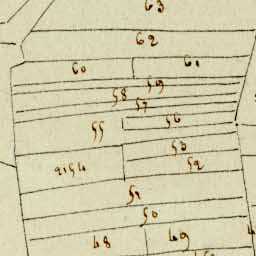 63
62
60 61
59
58
57
56
55
53
2154
52
51
50
48 49